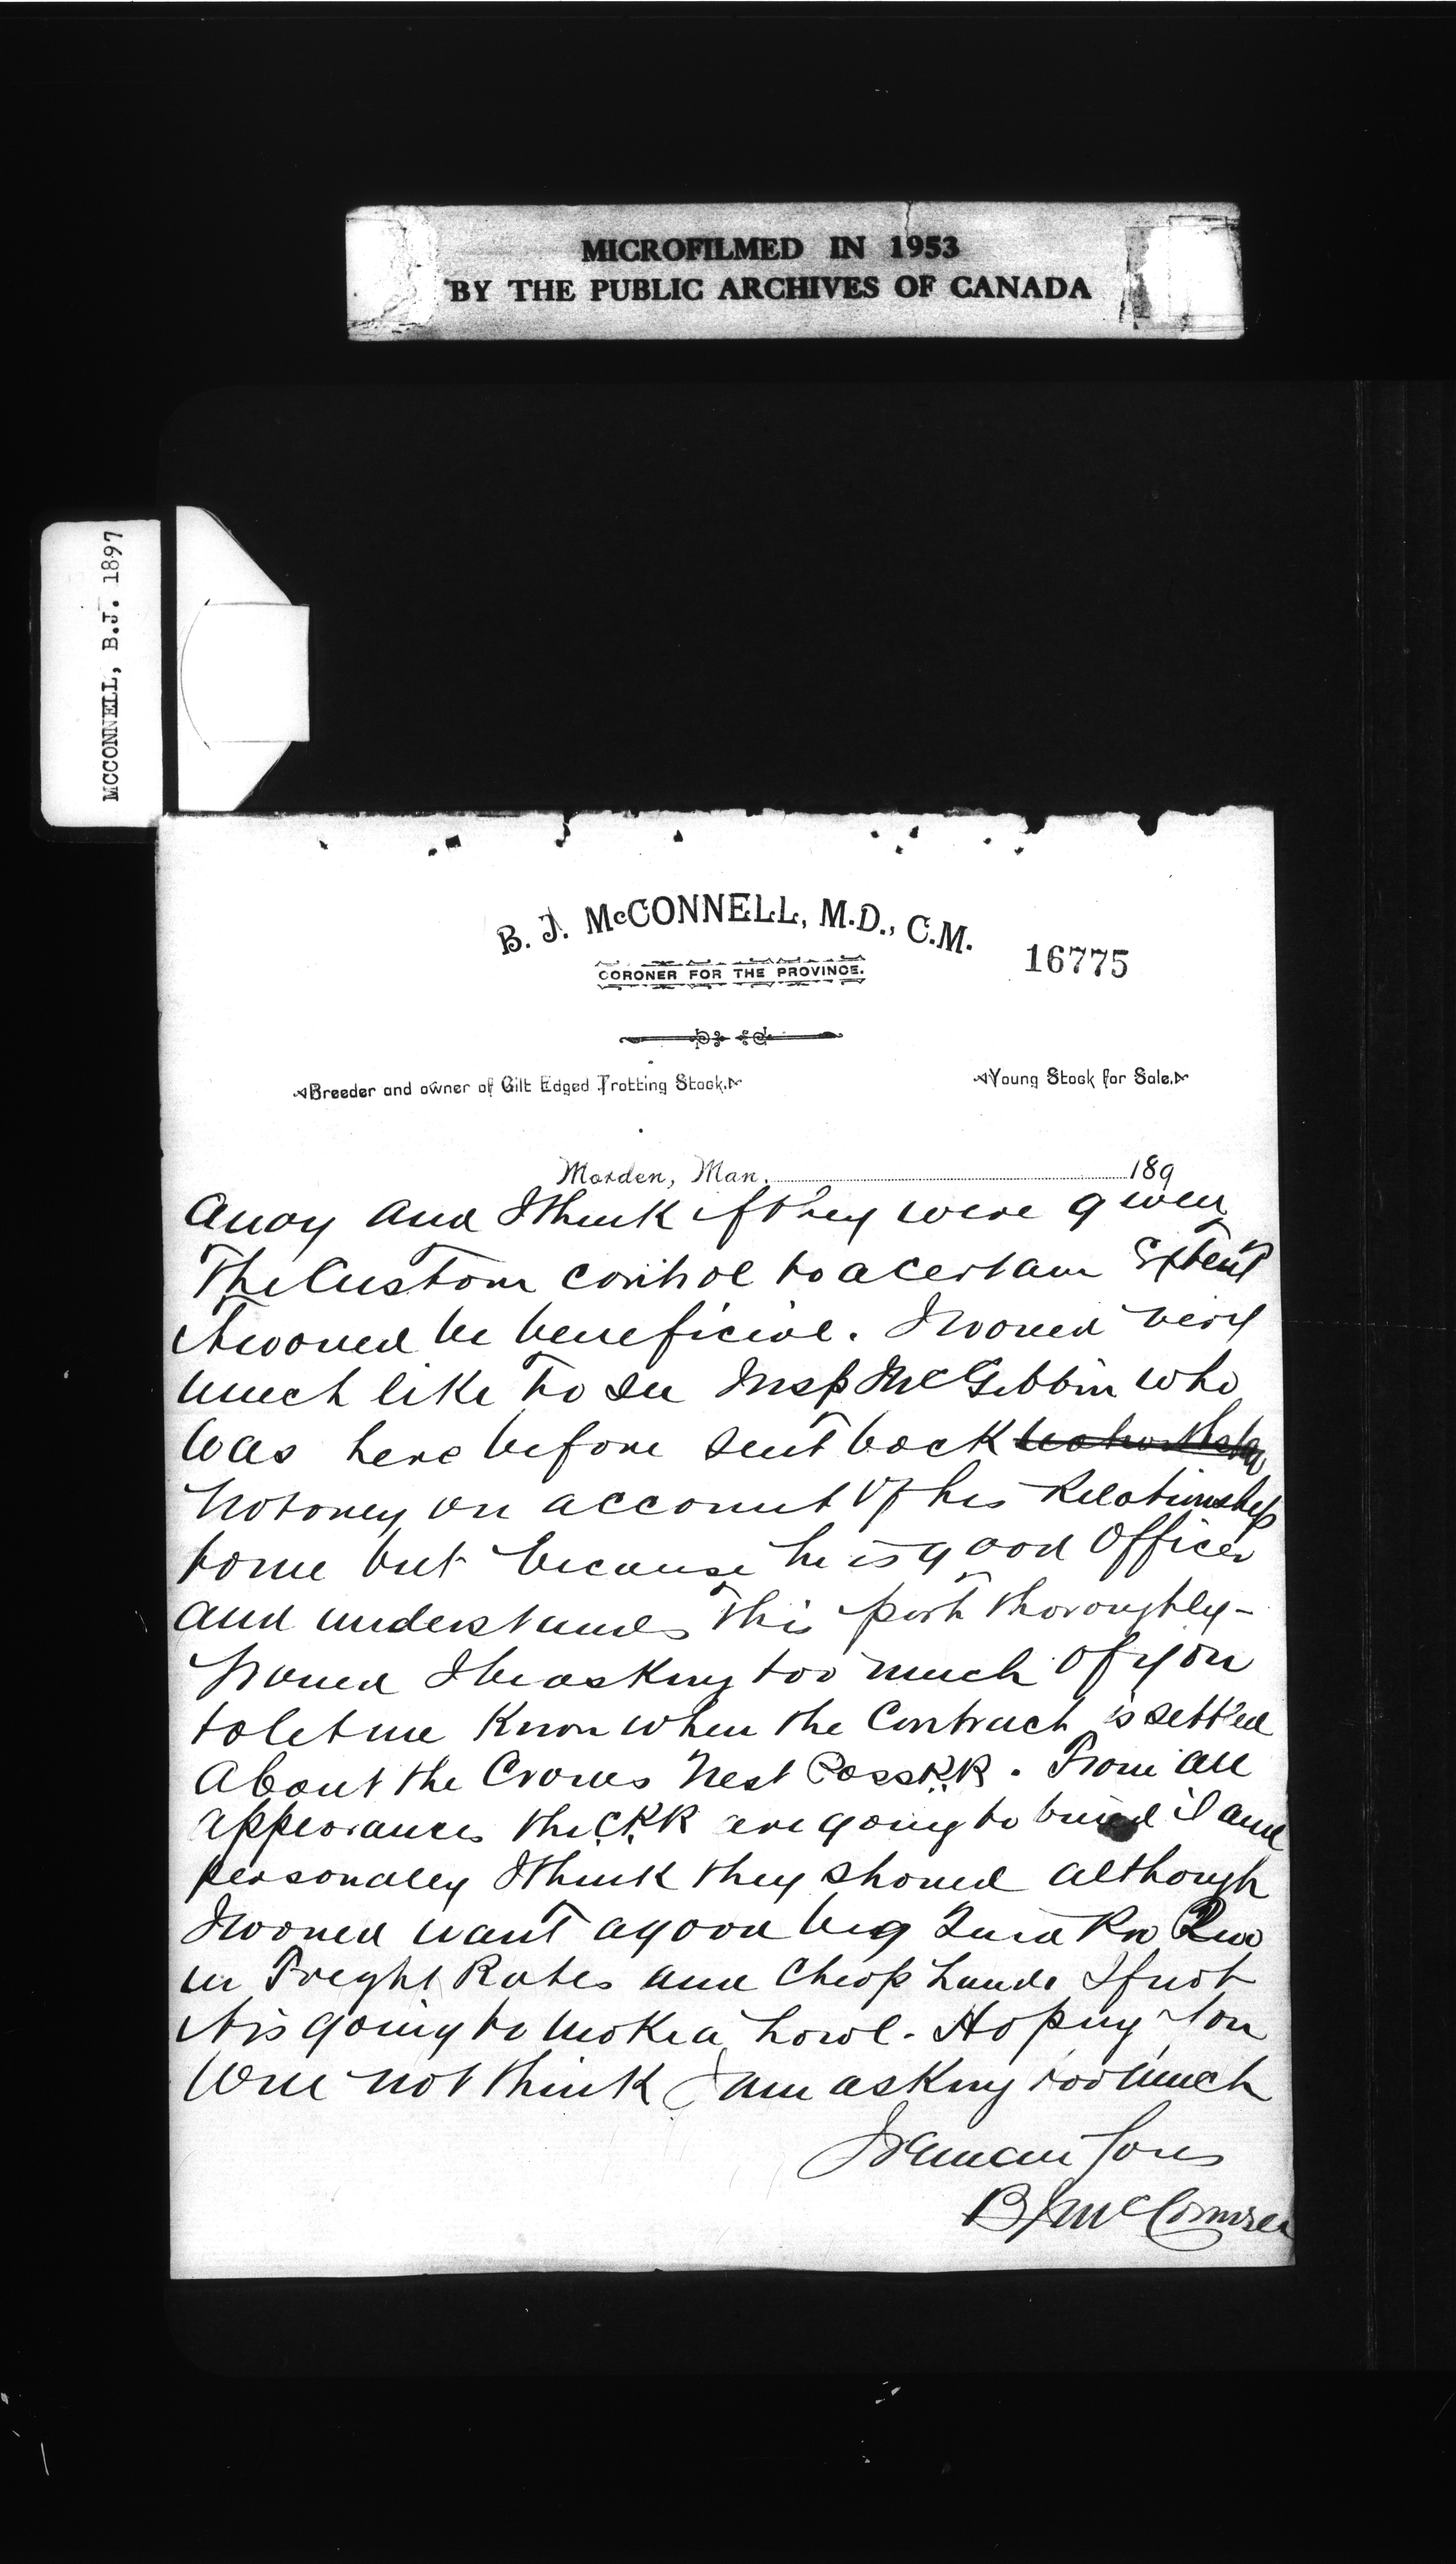 MICROFILMED IN 1953
BY THE PUBLIC ARCHIVES OF CANADA
MCCONNELL, B.J. 1897
B. J. McCONNELL, M.D., C.M.
16775
CORONER FOR THE PROVINCE.
Breeder and owner of Gilt Edged Trotting Stock.
Young Stock for Sale.
Morden, Man. 189
away and I think if they were given
the Custom control to a certain Extent
it would be beneficial. I would very
much like to see Insp McGibbin who
was here before sent back
not only on account of his Relationship
to me but because he is good Officer
and understands this part thoroughly -
Would I be asking too much of you
to let me know when the Contract is settled
about the Crows Nest Pass R.R. From all
appearances the C.P.R are going to build it and
personally I think they should although
I would want a good big Quid Pro Quo
in Freight Rates and Cheap Lands If not
it is going to make a howl. Hoping You
will not think I am asking too much
I remain Yours
B J McConnell